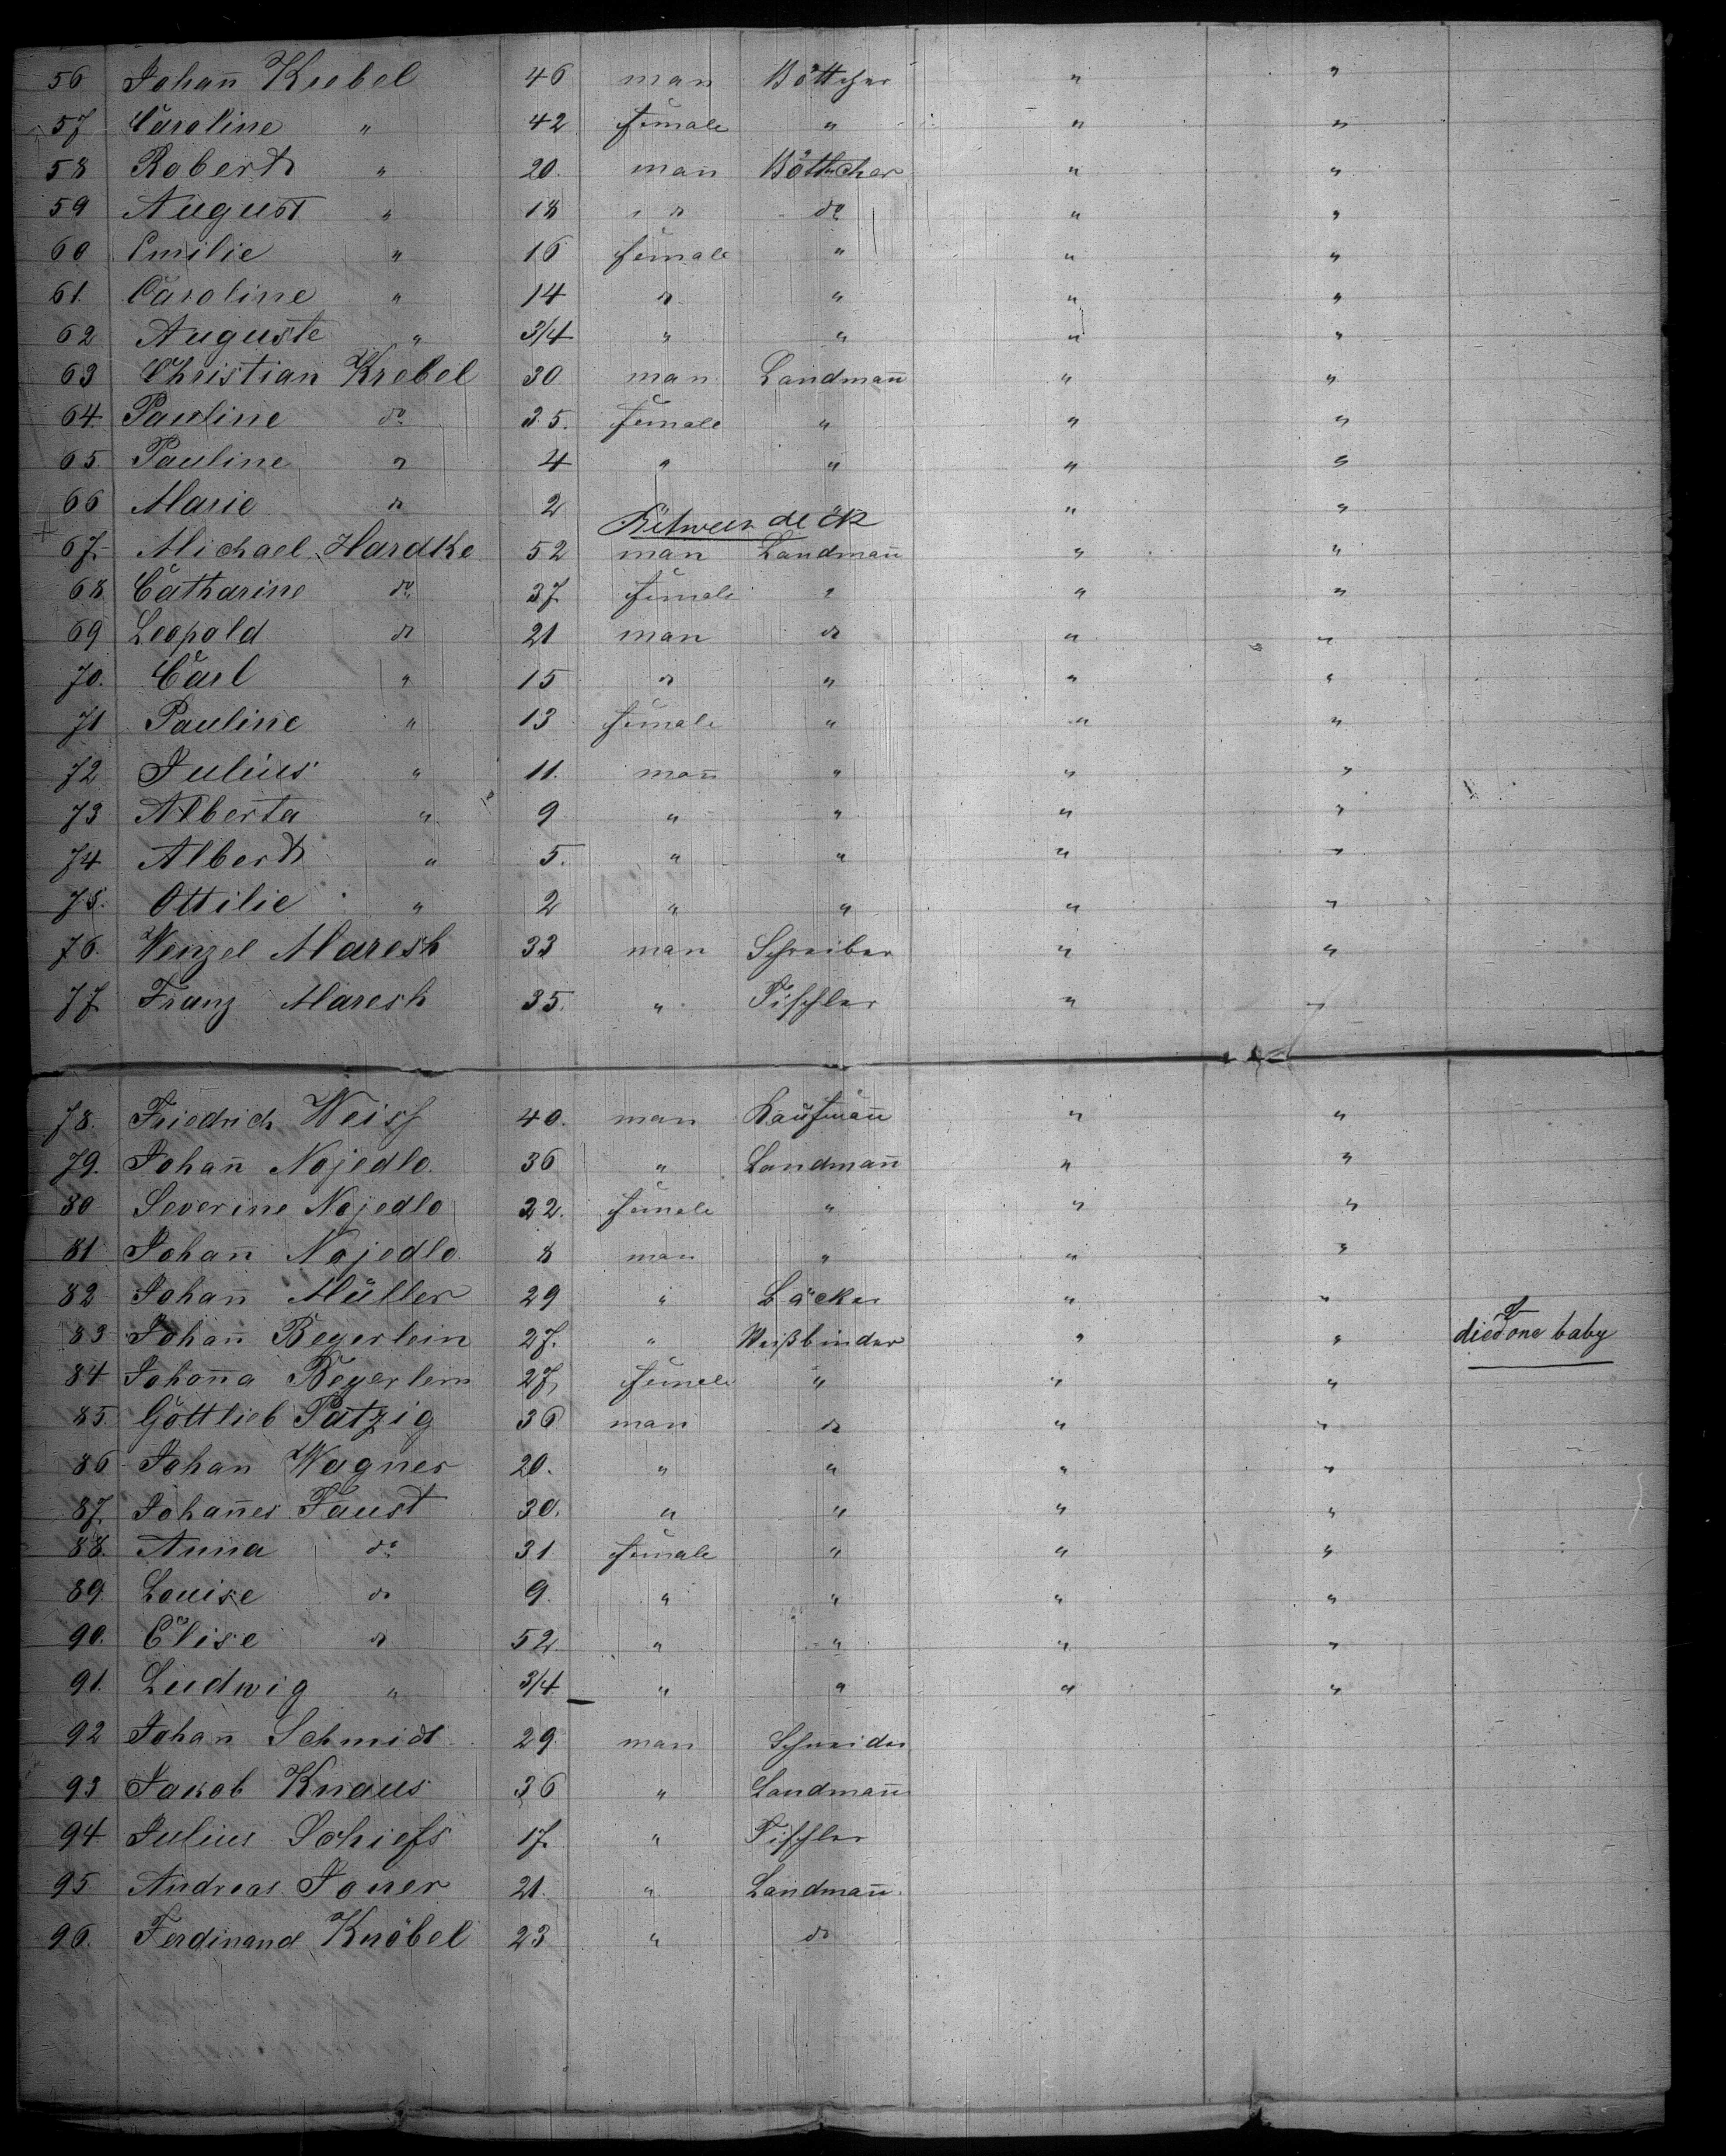 56 Johan̄ Krebel 46 man Böttcher " "
57 Caroline " 42 female " " "
58 Robert " 20. man Böttcher " "
59 August " 18 " do " "
60 Emilie " 16 female " " "
61. Caroline " 14 " " " "
62 Auguste " 3/4 " " " "
63 Christian Krebel 30 man Landman̄ " "
64. Pauline do 35. female " " "
65. Pauline " 4 " " " "
66 Marie " 2 " "
Zwischendeck
67. Michael Hardtke 52 man Landman̄ " "
68 Catharine do 37 female " " "
69 Leopold do 21 man do " "
70. Carl " 15 " " " "
71 Pauline " 13 female " " "
72 Julius " 11. man̄ " " "
73 Alberta " 9 " " " "
74 Albert " 5. " " " "
75. Ottilie " 2 " " " "
76. Wenzel Maresh 33 man Schreiber " "
77 Franz Maresh 35. " Tischler " "
78. Friedrich Weiss 40. man Kaufman̄ " "
79. Johan̄ Nojedlo 36 " Landman̄ " "
80 Severine Nojedlo 22. female " " "
81 Johan̄ Nojedlo 8 man " " "
82 Johan̄ Müller 29 " Bäcker " "
83 Johan̄ Begerlein 27. " Weißbinder " " died one baby
84 Johan̄a Begerlein 27, female " " "
85. Gottlieb Pätzig 36 man do " "
86 Johan Wagner 20. " " " "
87. Johan̄es Faust 30. " " " "
88. Anna do 31 female " " "
89. Louise do 9. " " " "
90. Elise do 52 " " " "
91. Ludwig " 3/4 " " " "
92 Johan̄ Schmidt 29 man Schneider
93 Jakob Knaus 36 " Landman̄
94 Julius Schiefs 17. " Tischler
95 Andreas Joner 21. " Landman̄.
96. Ferdinand Knöbel 23 " do